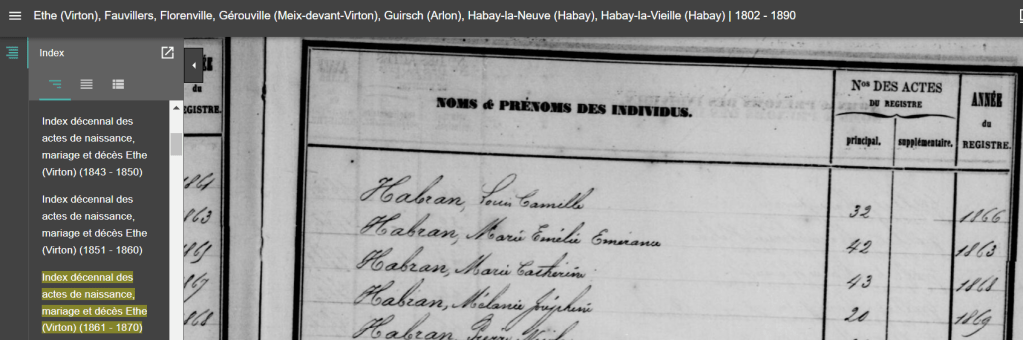 Ethe (Virton), Fauvillers, Florenville, Gérouville (Meix-devant-Virton), Guirsch (Arlon), Habay-la-Neuve (Habay), Habay-la-Vieille (Habay) | 1802 - 1890
Index
Index décennal des
actes de naissance,
mariage et décès Ethe
(Virton) (1843 - 1850)
Index décennal des
actes de naissance,
mariage et décès Ethe
(Virton) (1851 - 1860)
Index décennal des
actes de naissance,
mariage et décès Ethe
(Virton) (1861 - 1870)
du
GISTRE.
1861
1863
1867
1868
NOMS & PRÉNOMS DES INDIVIDUS.
Nos DES ACTES
DU REGISTRE
principal.
supplémentaire.
ANNÉE
du
REGISTRE.
Habran, Louis Camille 32 1866
Habran, Marie Emélie Emérance 42 1863
Habran, Marie Catherine 43 1868
Habran, Mélanie Joséphine 20 1869
Habran, Pierre